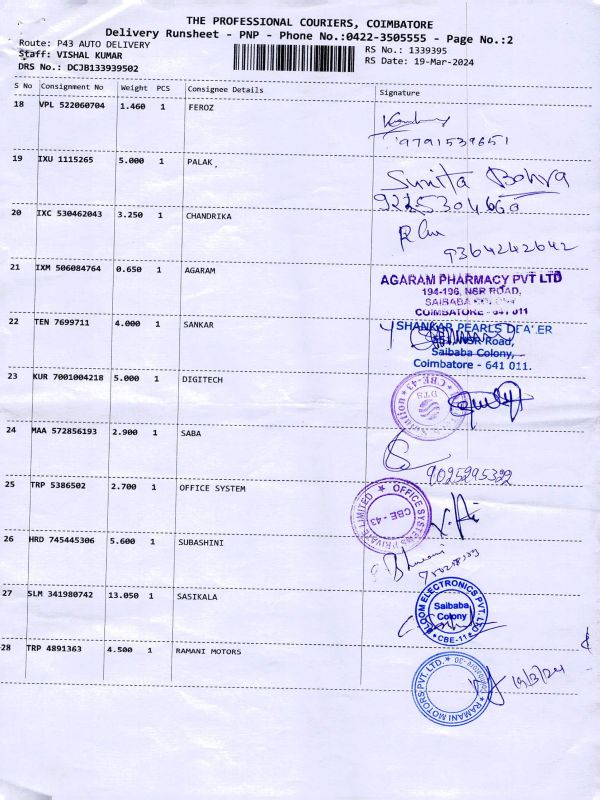 THE PROFESSIONAL COURIERS, COIMBATORE
Delivery Runsheet - PNP - Phone No.:0422-3505555 - Page No.:2
Route: P43 AUTO DELIVERY
RS No.: 1339395
Staff: VISHAL KUMAR
RS Date: 19-Mar-2024
DRS No.: DCJB133939502
S No Consignment No Weight PCS Consignee Details Signature
18 VPL 522060704 1.460 1 FEROZ
9791539651
19 IXU 1115265 5.000 1 PALAK
Sunita Bohra
9225304660
20 IXC 530462043 3.250 1 CHANDRIKA
9364242642
21 IXM 506084764 0.650 1 AGARAM
AGARAM PHARMACY PVT LTD
194-196, NSR ROAD,
SAIBABA COLONY
COIMBATORE - 641 011
22 TEN 7699711 4.000 1 SANKAR
SHANKAR PEARLS DEALER
NSR Road,
Saibaba Colony,
Coimbatore - 641 011.
23 KUR 7001004218 5.000 1 DIGITECH
CBE-43
DTS
24 MAA 572856193 2.900 1 SABA
9025295322
25 TRP 5386502 2.700 1 OFFICE SYSTEM
OFFICE SYSTEMS PRIVATE LIMITED
CBE-43
26 HRD 745445306 5.600 1 SUBASHINI
27 SLM 341980742 13.050 1 SASIKALA
BLOOM ELECTRONICS PVT. LTD
Saibaba
Colony
CBE-11
28 TRP 4891363 4.500 1 RAMANI MOTORS
RAMANI MOTORS PVT. LTD.
19/3/24